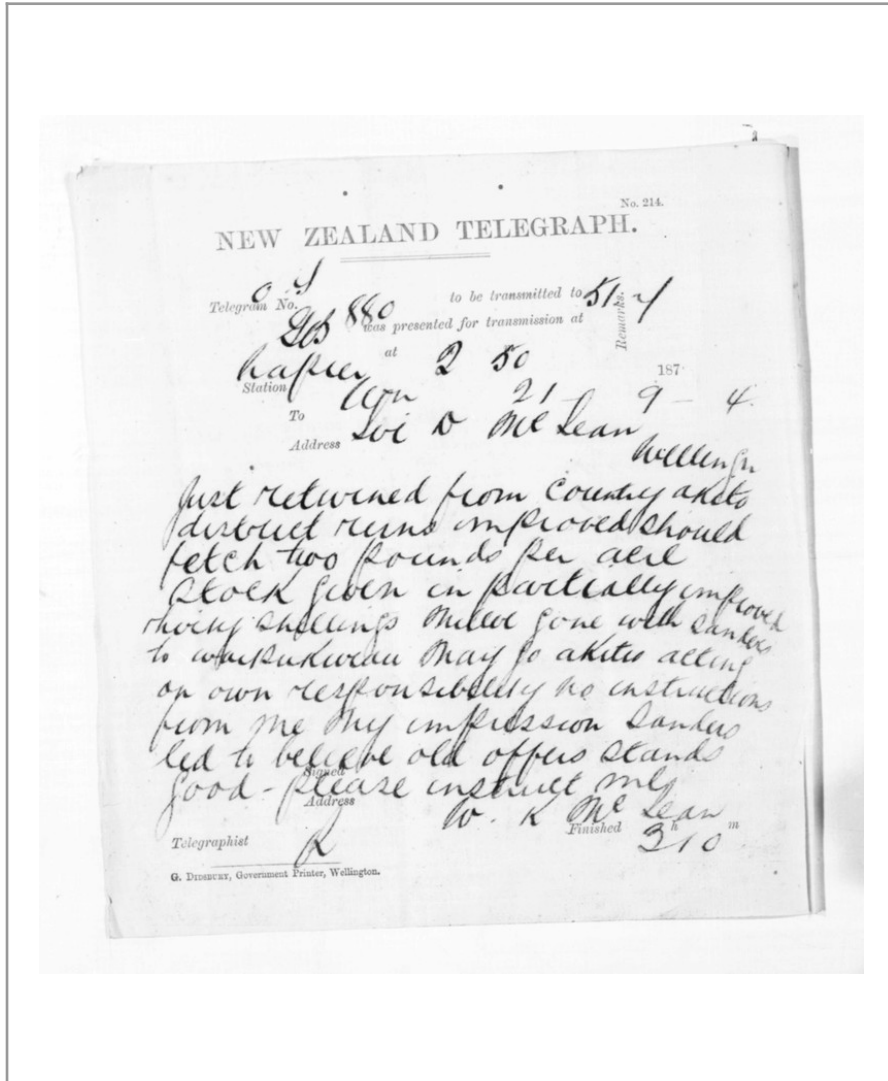 No. 214.
NEW ZEALAND TELEGRAPH.
Telegram No. to be transmitted to 51
880 was presented for transmission at
Remarks.
Napier at 2 50
Station 187
To 21 9 - 4
Address D McLean
Just returned from Country akito
district runs improved should
fetch two pounds per acre
Stock given in partially improved
thirty shillings gone with Sanders
to waipukurau May go akitio acting
on own responsibility no instructions
from me My impression Sanders
led to believe old offers stands
Signed
good - please instruct me
Address
W. K McLean
Telegraphist Finished 3 h 10 m
G. DIDSBURY, Government Printer, Wellington.